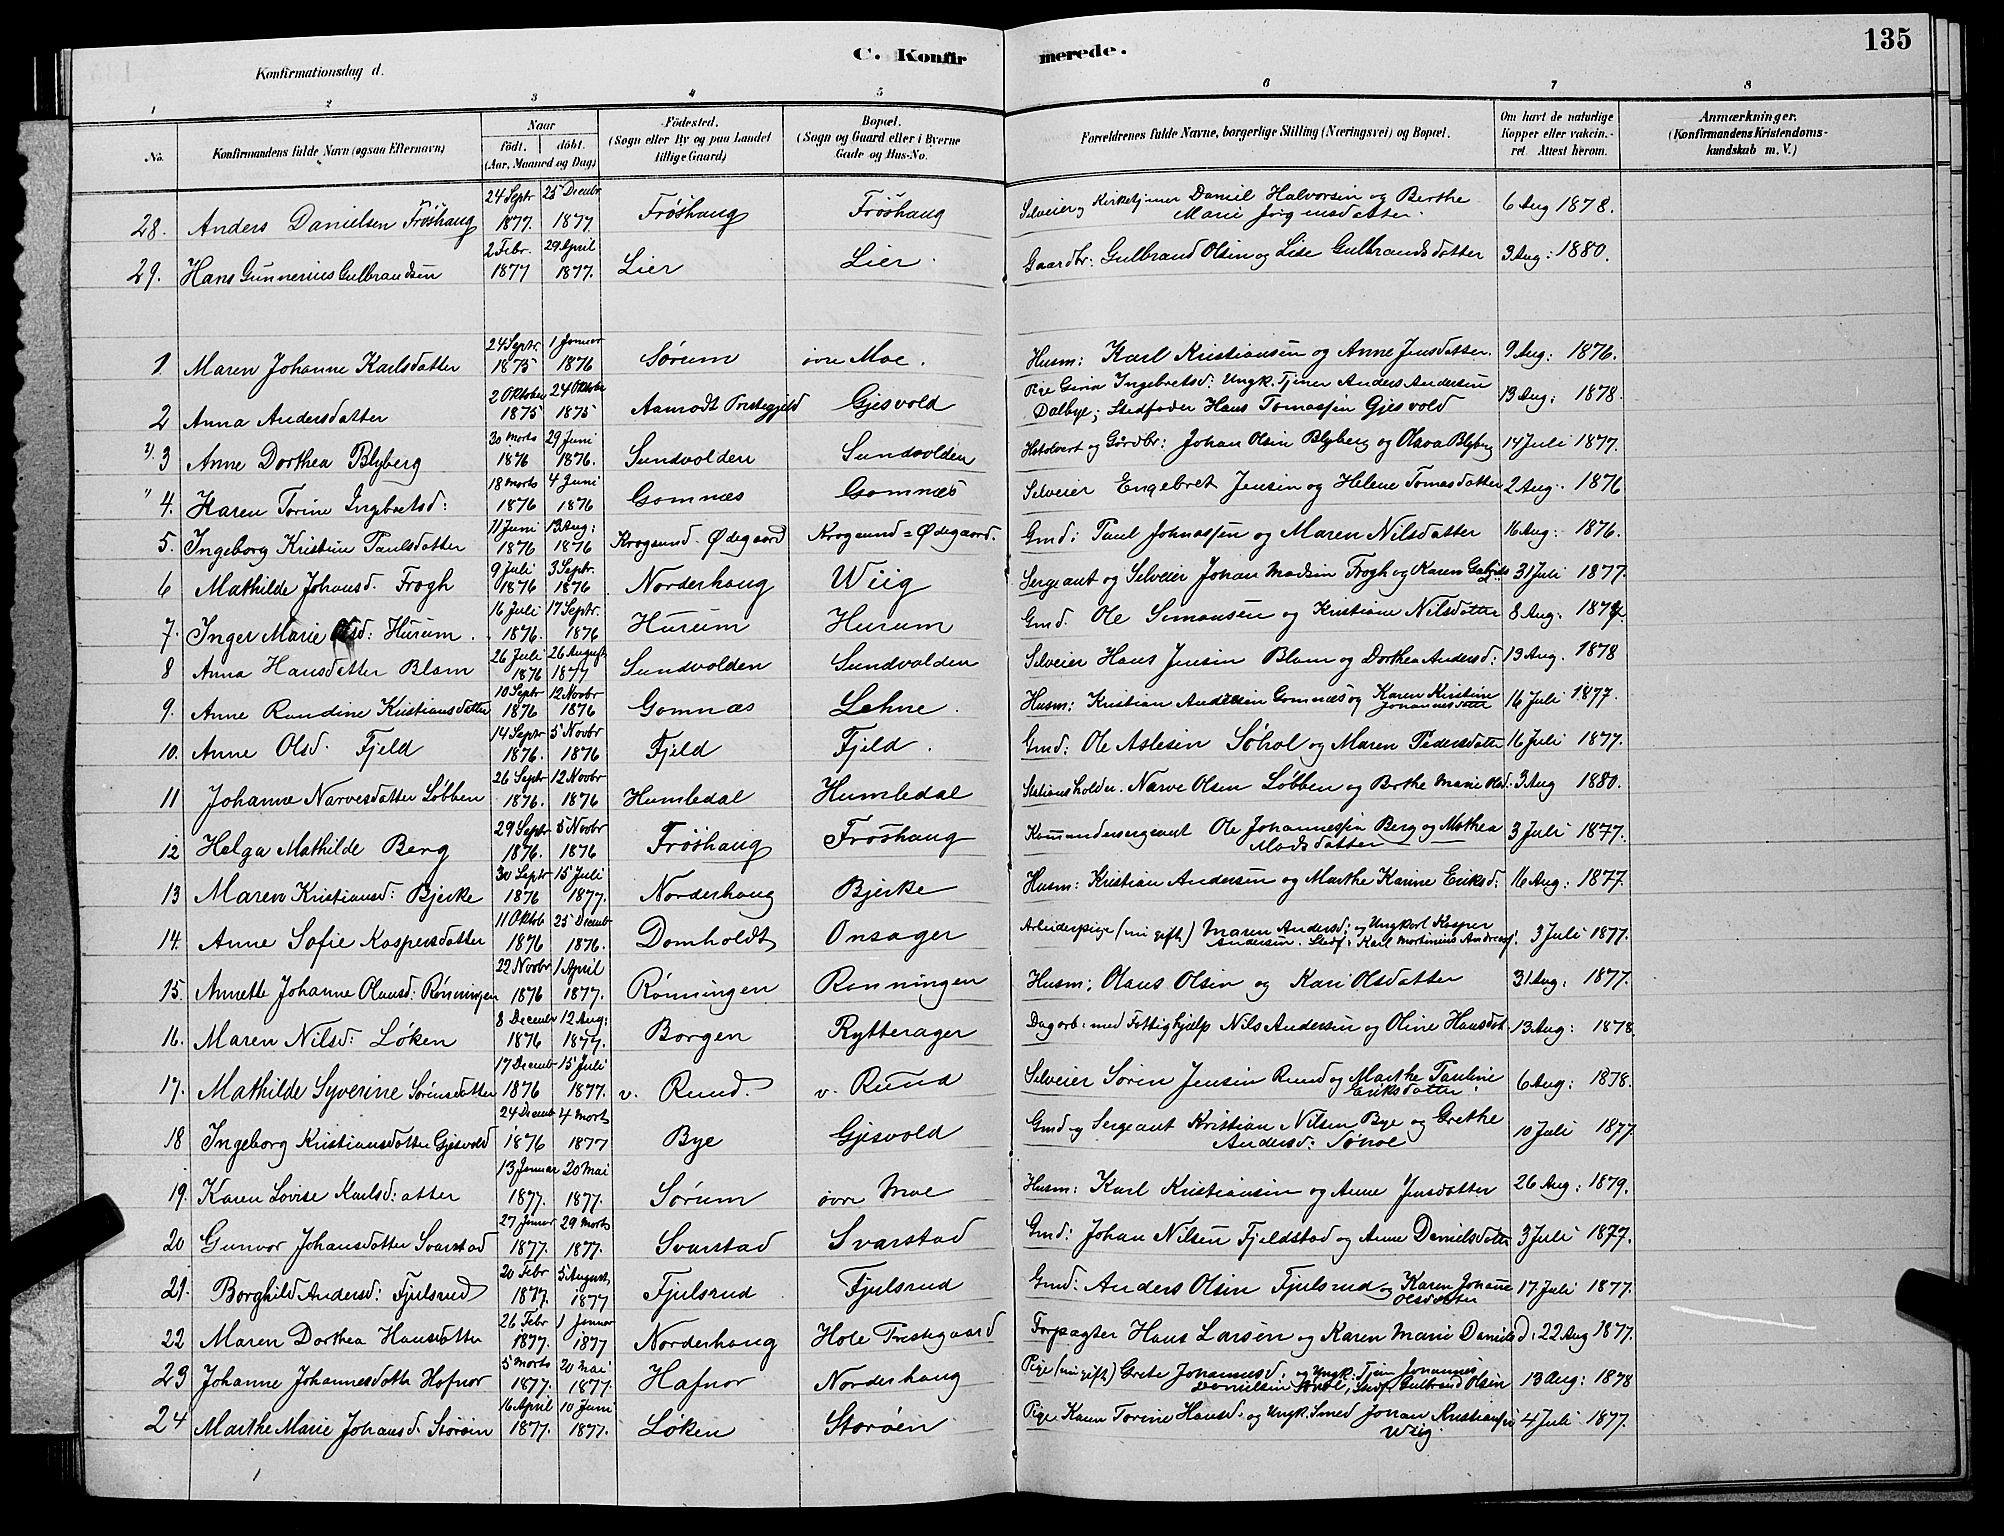 135
C. Konfirmerede.
Konfirmationsdag d.
1 2 3 4 5 6 7 8
No. Konfirmandens fulde Navn (ogsaa Efternavn) Naar født. døbt. (Aar, Maaned og Dag) Fødested. (Sogn eller By og paa Landet tillige Gaard) Bopæl. (Sogn og Gaard eller i Byerne Gade og Hus-No. Forældrenes fulde Navne, borgerlige Stilling (Næringsvei) og Bopæl. Om havt de naturlige Kopper eller vakcineret. Attest herom. Anmærkninger. (Konfirmandens Kristendomskundskab m. V.)
28. Anders Danielsen Frøshaug 24 Septr 1877. 25 Decembr 1877 Frøshaug Frøshaug Selveier og Kirketjener Daniel Halvorsen og Berthe Marie Jørgensdatter. 6 Aug 1878.
29. Hans Gunnerius Gulbrandsen 2 Febr. 1877 29 April 1877. Lier Lier. Gaardbr: Gulbrand Olsen og Lise Gulbrandsdatter 3 Aug: 1880.
1. Maren Johanne Karlsdatter 24 Septr. 1875 1 Januar 1876 Sørum øvre Moe. Husm: Karl Kristiansen og Anne Jensdatter. 9 Aug: 1876.
2 Anna Andersdatter 2 Oktober 1875 24 Oktobr 1875 Aamodt Prestegjeld Gjesvold Pige Ingebretsd: Ungk. Tjener Anders Andersen Dalbye; Stedfader Hans Tomassen Gjesvold 13 Aug: 1878.
3 Anne Dorthea Blyberg 30 Marts 1876 29 Juni 1876. Sundvolden Sundvolden og Gårdbr: Johan Olsen Blyberg og Olava Blyberg 14 Juli 1877.
4. Karen Torine Ingebretsd: 18 Marts 1876 4 Juni 1876 Gomnæs Gomnæs Selveier Engebret Jensen og Helene Tomasdatter 2 Aug. 1876
5. Ingeborg Kristine Paulsdatter 11 Juni 1876 13 Aug: 1876 Krogsund-Ødegaard Krogsund=Ødegaard. Gmd: Paul Johnassen og Maren Nilsdatter 16 Aug: 1876.
6 Mathilde Johansd. Frogh 9 Juli 1876 3 Septr. 1876 Norderhoug Wiig Sergeant og Selveier Johan Madsen Frogh og Karen 31 Juli 1877.
7. Inger Marie Olsd: Hurum. 16 Juli 1876. 17 Septr. 1876 Hurum Hurum Gmd. Ole Simonsen og Kristiane Nilsdatter 8 Aug:
8 Anna Hansdatter Blom 26 Juli 1876 26 August 1877 Sundvolden Sundvolden Selveier Hans Jensen Blom og Dorthea Andersd: 13 Aug. 1878
9. Anne Randine Kristiansdatter 10 Septr 1876 12 Novbr 1876 Gomnæs Lehne. Husm: Kristian Andersen Gomnæs og Karen Kristine Johannesdatter 16 Juli 1877.
10. Anne Olsd. Fjeld 14 Septr 1876. 5 Novbr 1876 Fjeld Fjeld. Gmd: Ole Aslesen Søhol og Maren Pedersdatter 16 Juli 1877.
11 Johanne Narvesdatter Løbben 26 Septr 1876. 12 Novbr 1876 Humledal Humledal Stationsholder. Narve Olsen Løbben og Berthe Marie Olsd. 3 Aug 1880.
12 Helga Mathilde Berg 29 Septr 1876. 5 Novbr 1876 Frøshaug Frøshaug Kommandersergeant Ole Johannessen Berg og Mathea Madsdatter 3 Juli 1877.
13 Maren Kristiansd: Bjerke 30 Septr 1876 15 Juli 1877. Norderhoug Bjerke Husm: Kristian Andersen og Marthe Karine Eriksd: 16 Aug: 1877.
14. Anne Sofie Kaspersdatter 11 Oktob 1876 25 Decmbr 1876. Domholdt Onsager Arbeiderpige (nu gift) Maren Andersd: og Ungkarl Kasper Andersen. Stedf: Karl Mortinius Andreas. 3 Juli 1877.
15. Annette Johanne Olausd: Rønningen 22 Novbr 1876 1 April 1877. Rønningen Rønningen Husm: Olaus Olsen og Kari Olsdatter 31 Aug: 1877.
16. Maren Nilsd: Løken 8 Decembr 1876 12 Aug: 1877. Borgen Rytterager Dagarb: med Fattighjelp Nils Andersen og Oline Hansdat. 13 Aug: 1878
17. Mathilde Syverine Sørensdatter 17 Decembr 1876 15 Juli 1877. v. Rund. v. Rund Selveier Søren Jensen Rund og Marthe Pauline Eriksdatter 6 Aug: 1878.
18 Ingeborg Kristiansdatter Gjesvold 24 Decmb 1876 4 Marts 1877 Bye Gjesvold Gmd og Sergeant Kristian Nilsen Bye og Grethe Andersd: 10 Juli 1877.
19. Karen Lovise Karlsd:atter 13 Januar 1877. 20 Mai 1877. Sørum øvre Moe Husm: Karl Kristiansen og Anne Jensdatter 26 Aug: 1879.
20 Gunvor Johansdatter Svarstad 27 Januar 1877. 29 Marts 1877. Svarstad Svarstad Gmd: Johan Nilsen Fjeldstad og Anne Danielsdatter 3 Juli 1877.
21. Borghild Andersd: Fjulsrud 20 Febr 1877. 5 August 1877 Fjulsrud Fjulsrud Gmd: Anders Olsen Fjulsrud og Karen Johanne Olsdatter 17 Juli 1877.
22 Maren Dorthea Hansdatter 26 Febr 1877. 1 Januar 1877 Norderhoug Hole Prestegaard Forpagter Hans Larsen og Karen Marie Danielsd: 22 Aug 1877.
23 Johanne Johannesdatter Hafnor 5 Marts 1877. 20 Mai 1877. Hafnor Norderhoug Pige (nu gift) Grete Johannesd: og Ungk. Tjen. Johannes Danielsen; Stedf. Gulbrand Olsen 13 Aug: 1878
24 Marthe Marie Johansd. Storøen 16 April 1877. 10 Juni 1877. Løken Storøen Pige Karen Torine Hansd: og Ungk. Smed Johan Kristiansen Wiig. 4 Juli 1877.